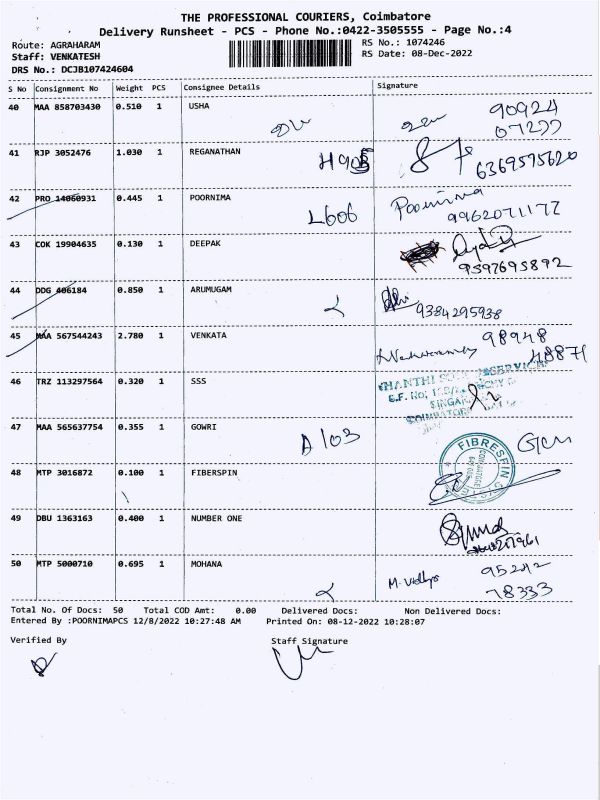 THE PROFESSIONAL COURIERS, Coimbatore
Delivery Runsheet - PCS - Phone No.:0422-3505555 - Page No.:4
Route: AGRAHARAM RS No.: 1074246
Staff: VENKATESH RS Date: 08-Dec-2022
DRS No.: DCJB107424604
S No Consignment No Weight PCS Consignee Details Signature
40 MAA 858703430 0.510 1 USHA 90924
07277
41 RJP 3052476 1.030 1 REGANATHAN H905 6369595620
42 PRO 14060931 0.445 1 POORNIMA L606 Poornima
9962071177
43 COK 19904635 0.130 1 DEEPAK
9597695892
44 DDG 406184 0.850 1 ARUMUGAM 9384295938
45 MAA 567544243 2.780 1 VENKATA 98948
48871
46 TRZ 113297564 0.320 1 SSS
47 MAA 565637754 0.355 1 GOWRI A103
FIBRESPIN
48 MTP 3016872 0.100 1 FIBERSPIN
49 DBU 1363163 0.400 1 NUMBER ONE
50 MTP 5000710 0.695 1 MOHANA 95242
78333
Total No. Of Docs: 50 Total COD Amt: 0.00 Delivered Docs: Non Delivered Docs:
Entered By :POORNIMAPCS 12/8/2022 10:27:48 AM Printed On: 08-12-2022 10:28:07
Verified By Staff Signature